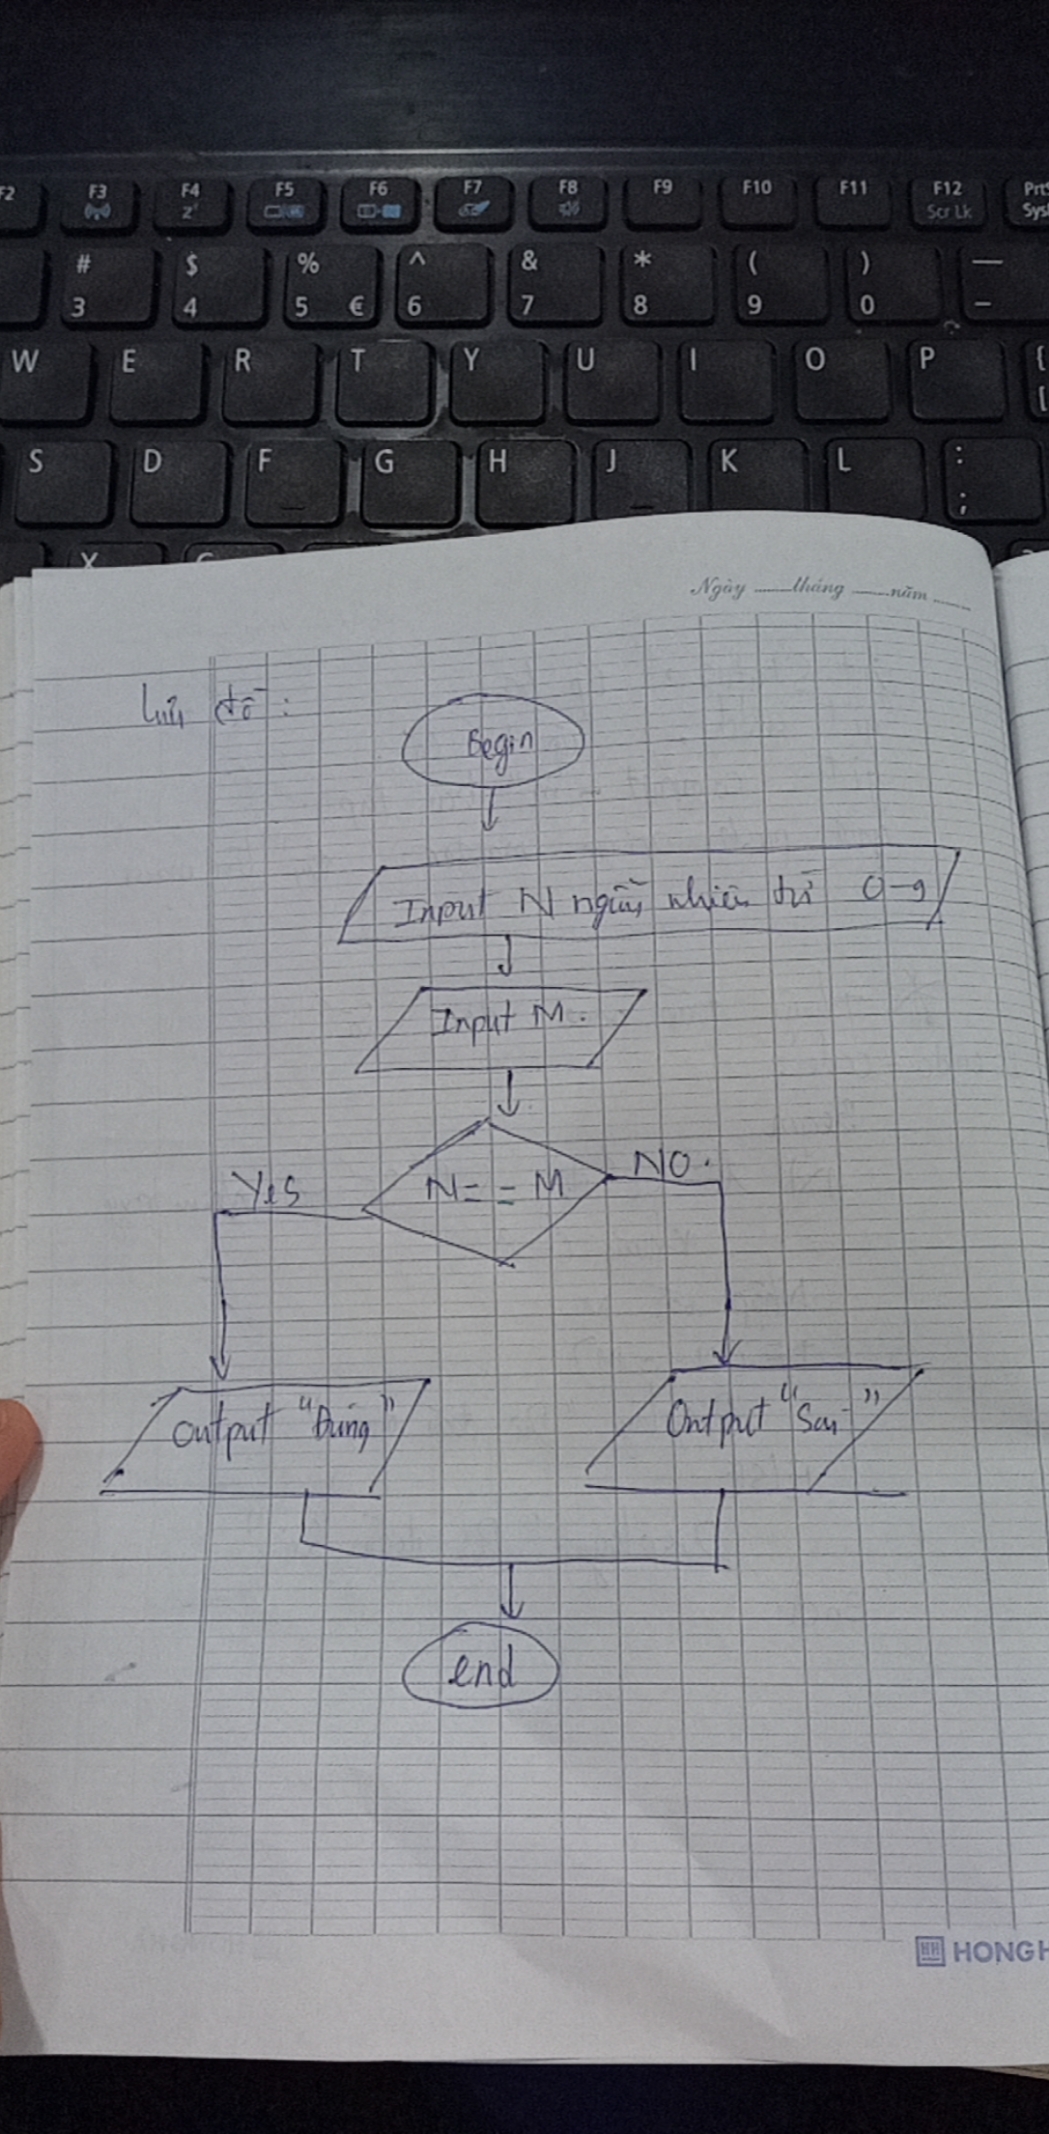 F2 F3 F4 F5 F6 F7 F8 F9 F10 F11 F12
zᶻ Scr Lk
# $ % ^ & * ( ) —
3 4 5 € 6 7 8 9 0 -
W E R T Y U I O P {
[
S D F G H J K L :
;
Ngày ......tháng ......năm ......
Lưu đồ :
Begin
Input N ngẫu nhiên từ 0-9
Input M.
Yes N = = M NO.
Output "Đúng" Output "Sai"
end
HH HONGH